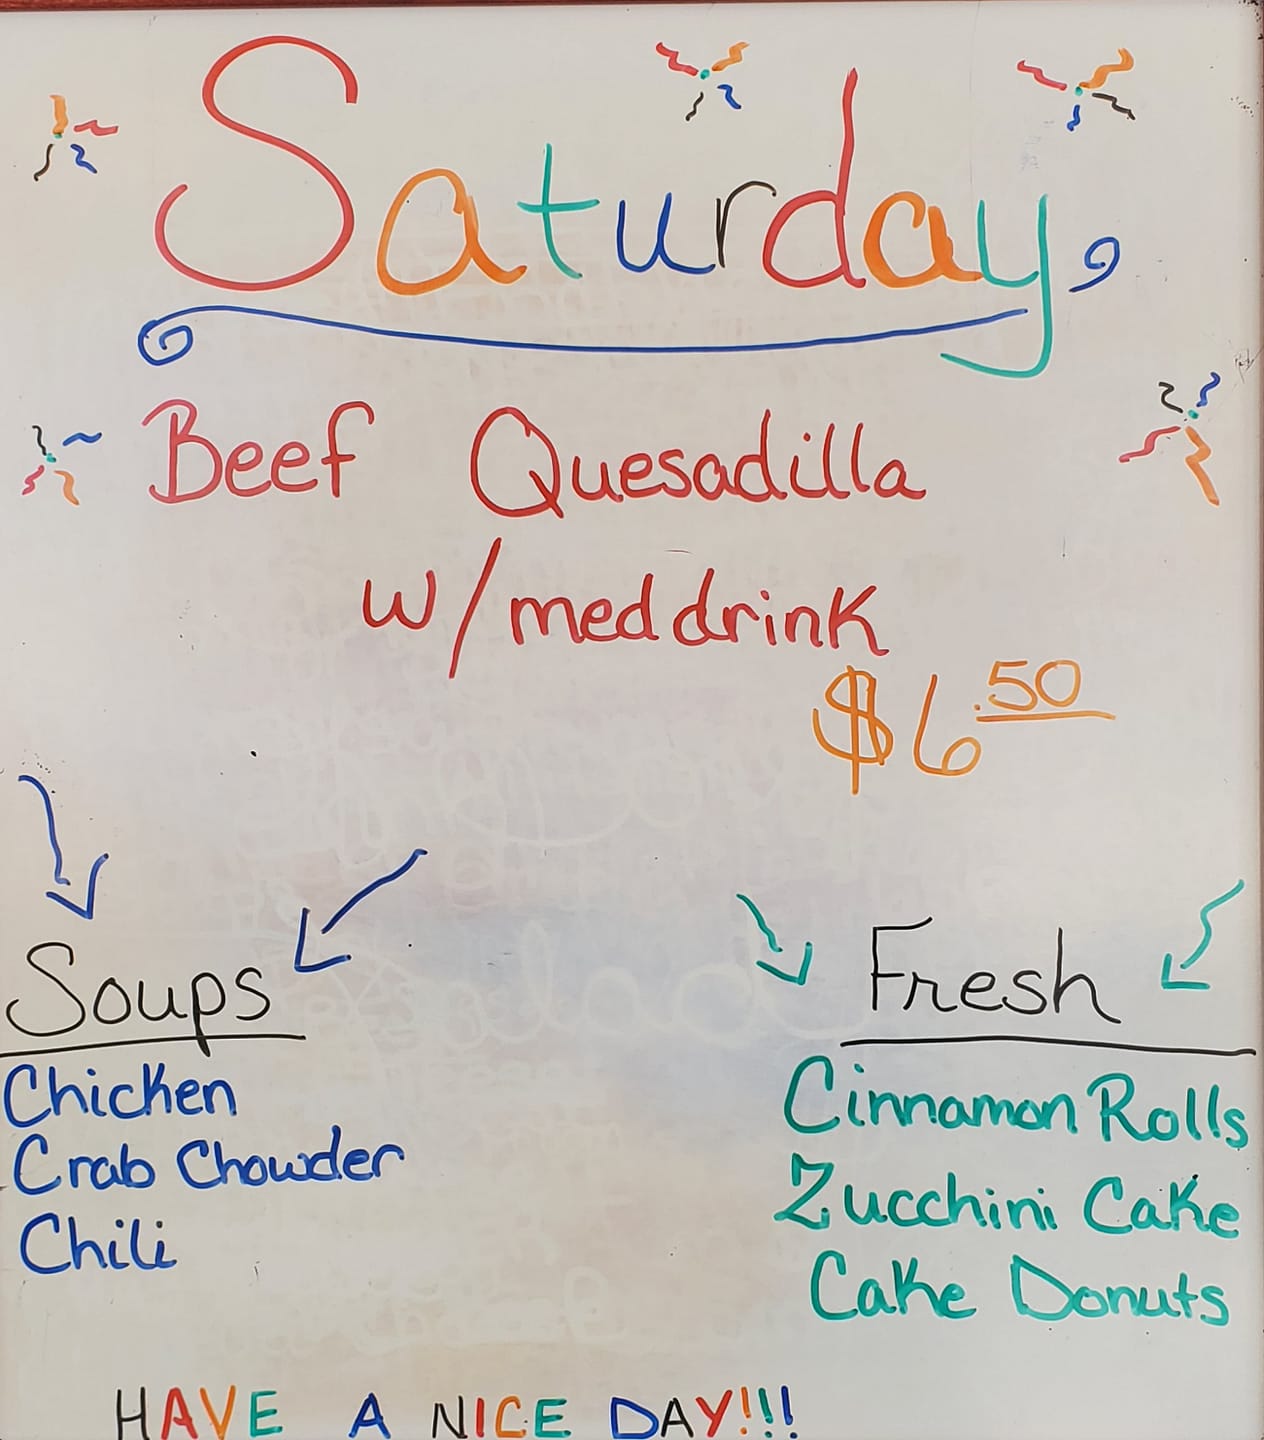 Saturday,
Beef Quesadilla
w/ med drink
$6.50
Soups
Chicken
Crab Chowder
Chili
Fresh
Cinnamon Rolls
Zucchini Cake
Cake Donuts
HAVE A NICE DAY!!!